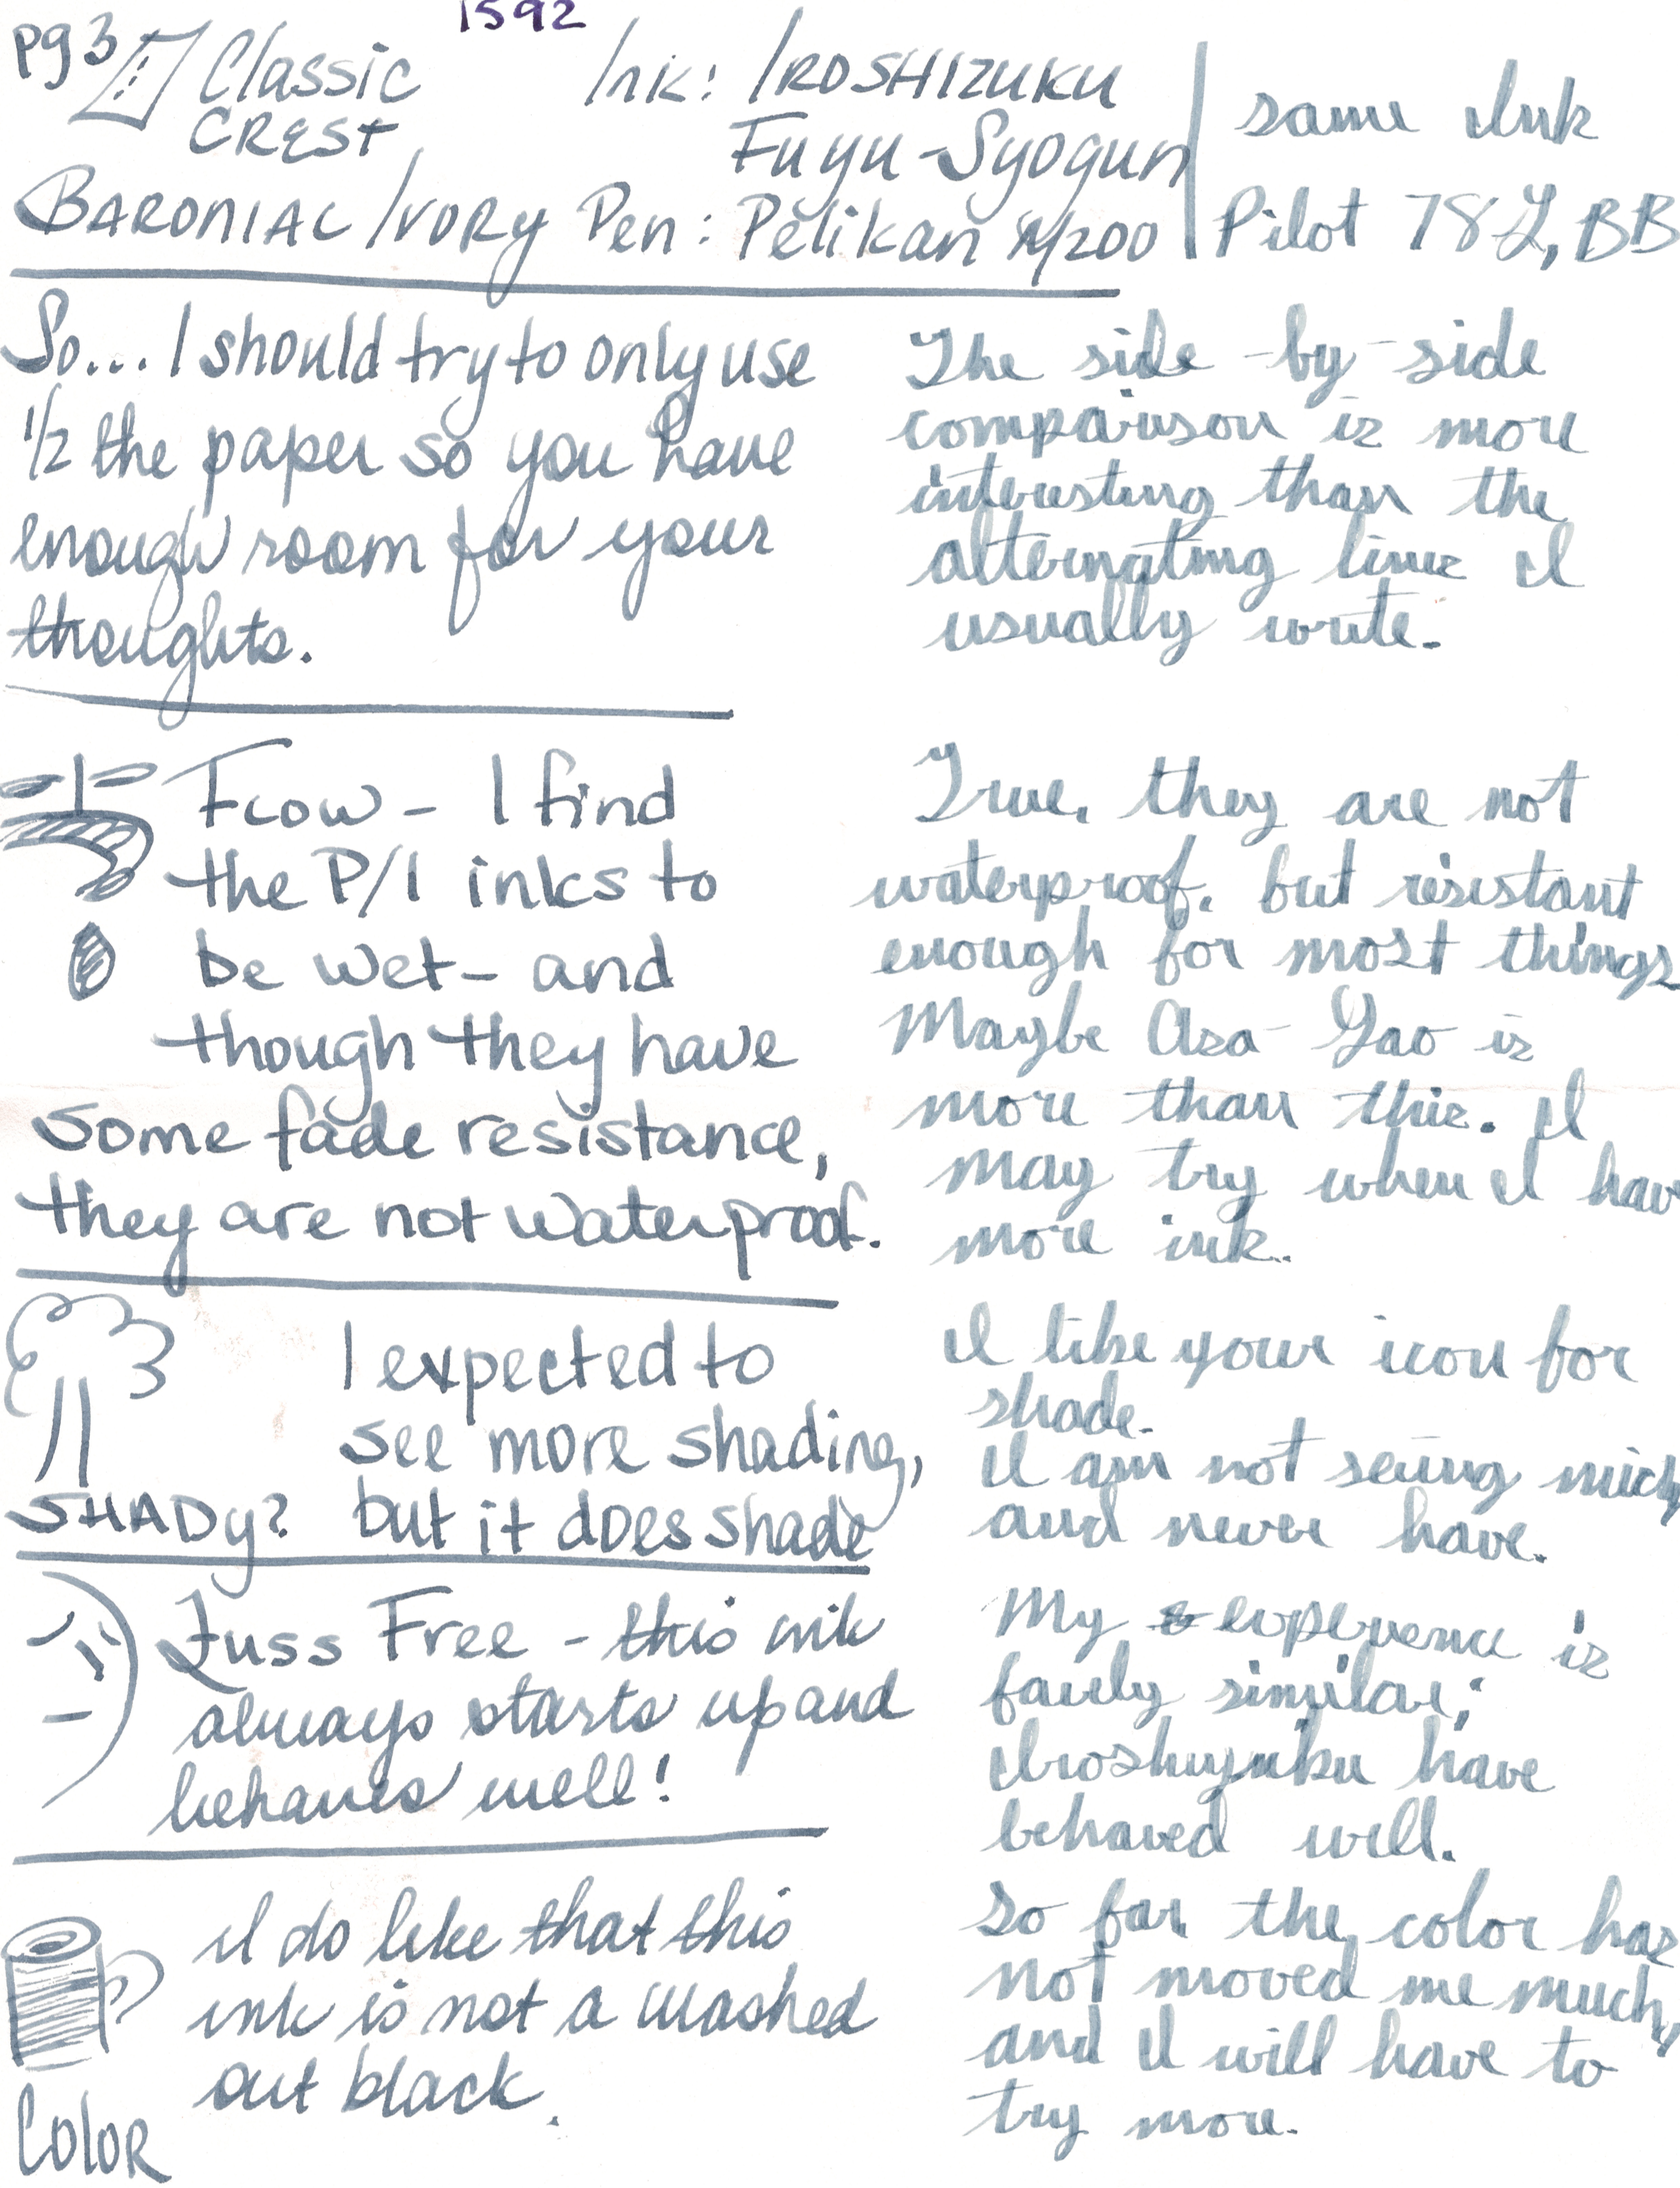 1592
pg 3
Classic
CREST
BARONIAL IVORY
Ink: IROSHIZUKU
Fuyu-Syogun
Pen: Pelikan M200
same Ink
Pilot 78G, BB
So... I should try to only use
1/2 the paper so you have
enough room for your
thoughts.
The side-by-side
comparison is more
interesting than the
alternating lines I
usually write.
Flow - I find
the P/I inks to
be wet - and
though they have
some fade resistance,
they are not waterproof.
True, they are not
waterproof, but resistant
enough for most things
Maybe Asa Gao is
more than this. I
may try when I hav
more ink.
I expected to
see more shading,
SHADy? but it does shade
I like your icon for
shade.
I am not seeing much,
and never have.
Fuss Free - this ink
always starts up and
behaves well!
My experience is
fairly similar;
Iroshizuku have
behaved well.
I do like that this
ink is not a washed
out black.
Color
So far, the color has
not moved me much,
and I will have to
try more.